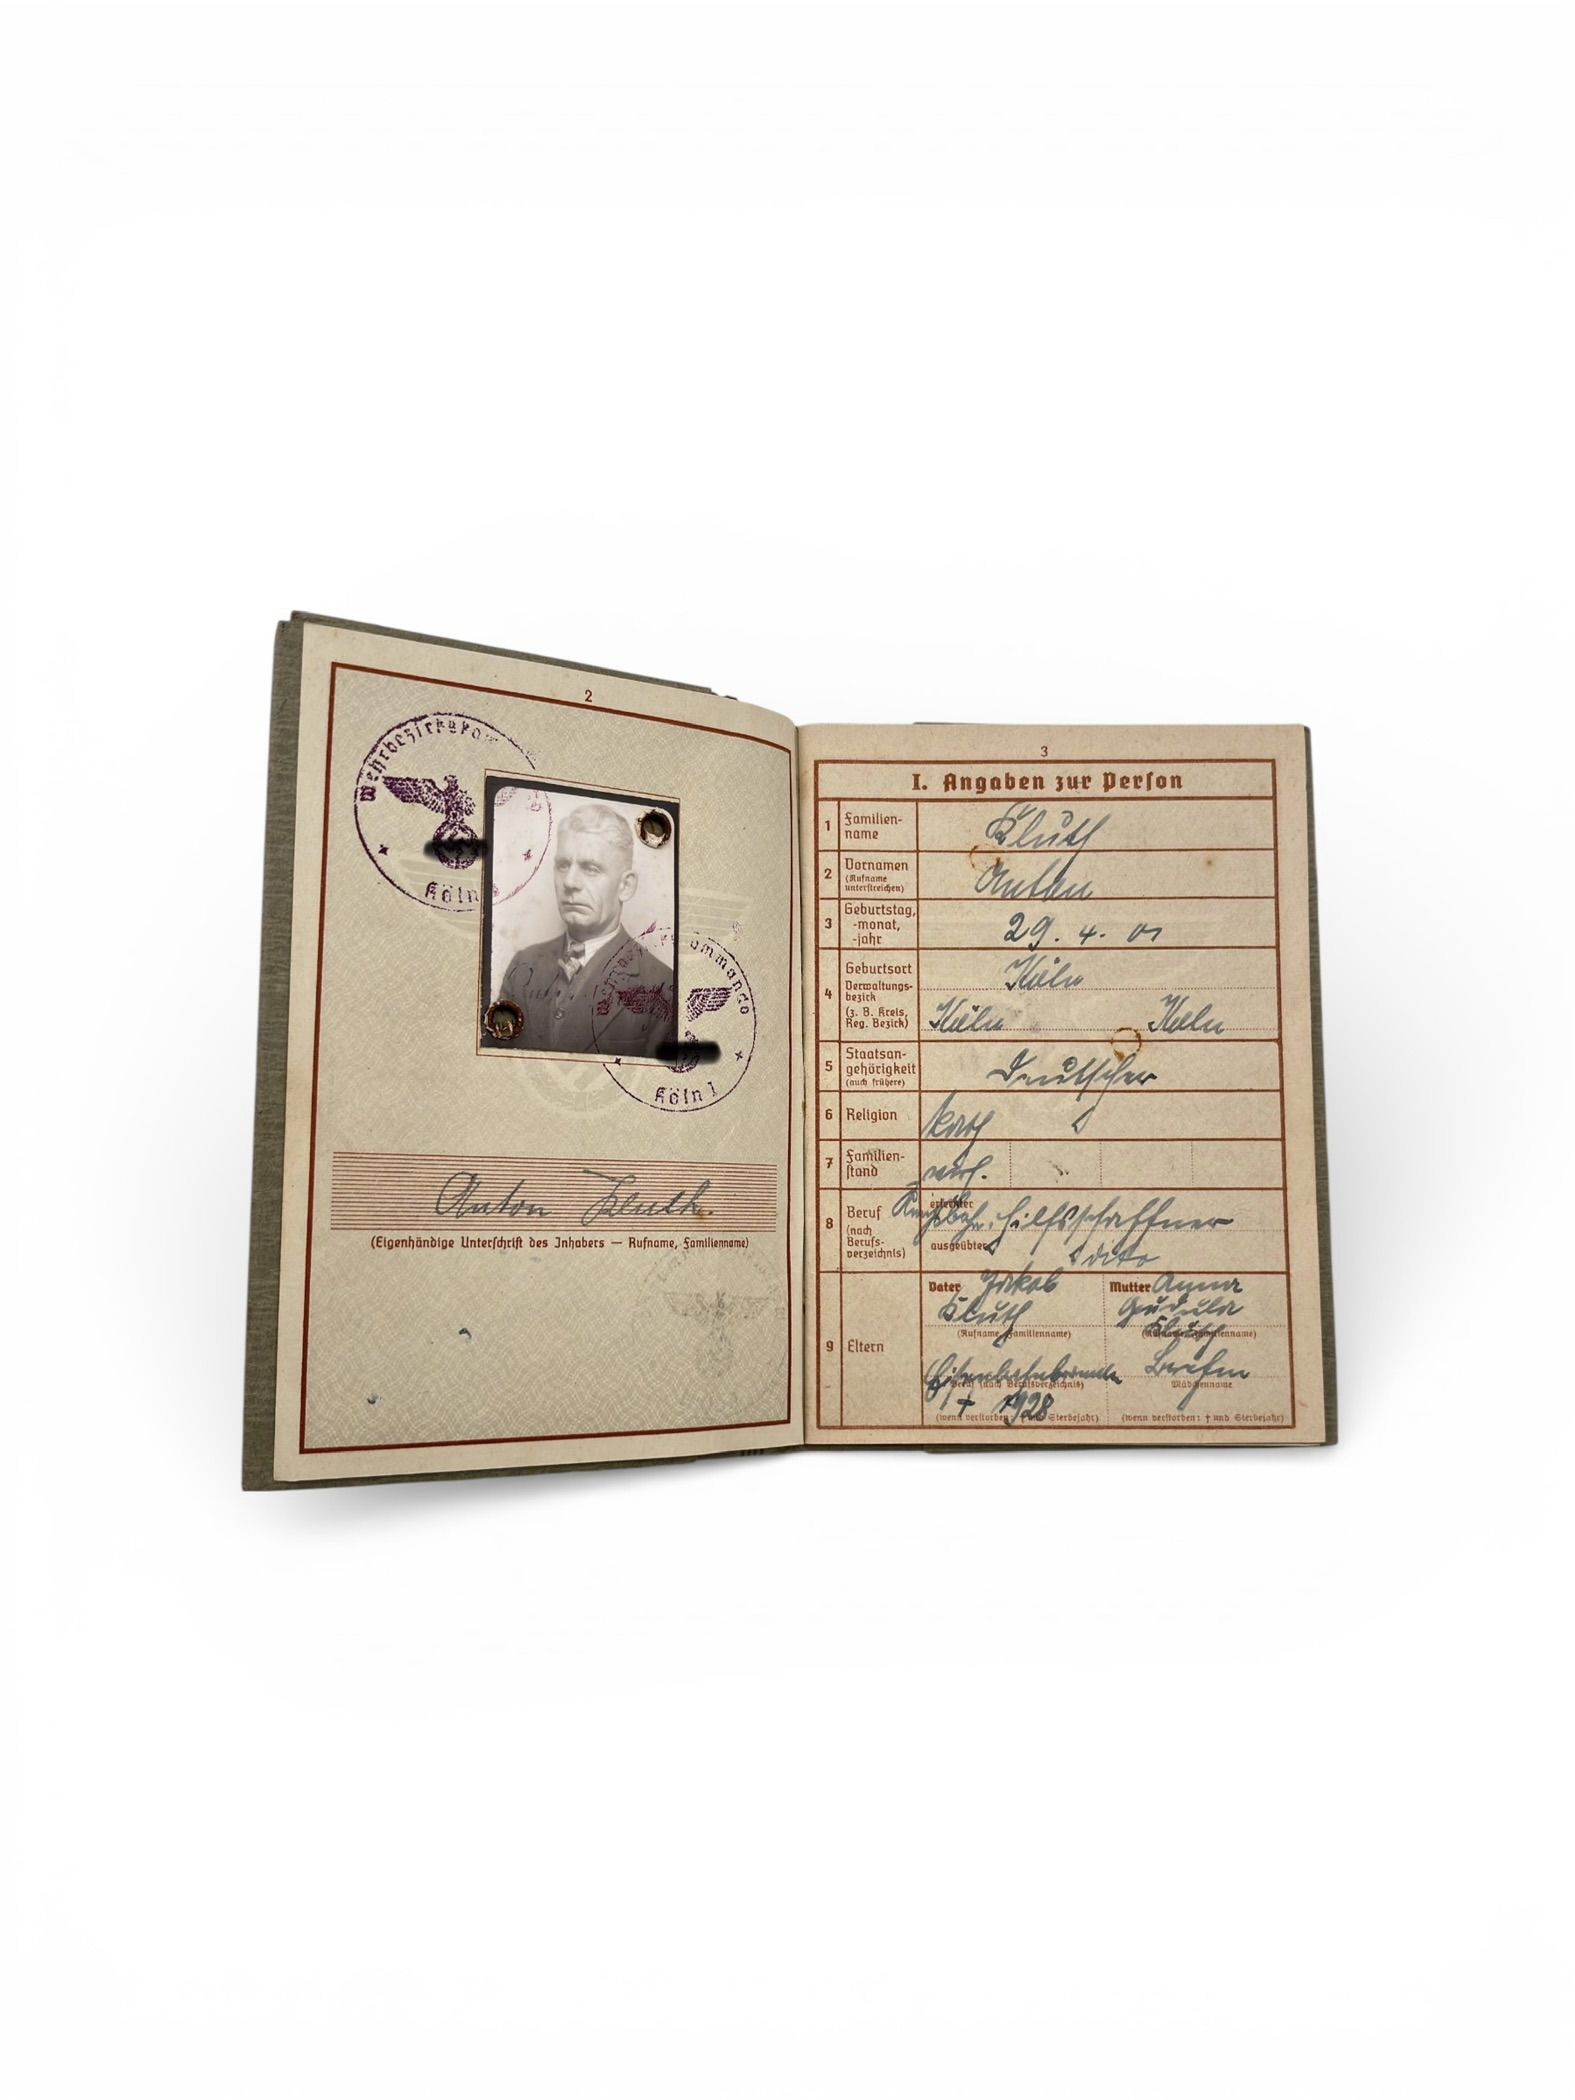 2
Wehrbezirkskom
Köln
ommando
Köln I
Anton Kluth.
(Eigenhändige Unterschrift des Inhabers — Rufname, Familienname)
3
I. Angaben zur Person
1 Familien-
name
Kluth
2 Vornamen
(Rufname
unterstreichen)
Anton
3 Geburtstag,
-monat,
-jahr
29. 4. 01
4 Geburtsort
Verwaltungs-
bezirk
(z. B. Kreis,
Reg. Bezirk)
Köln
Köln Köln
5 Staatsan-
gehörigkeit
(auch frühere)
Deutscher
6 Religion
kath
7 Familien-
stand
verh.
8 Beruf
(nach
Berufs-
verzeichnis)
erlernter
Reichsbahn. Hilfsschaffner
ausgeübter
dito
9 Eltern
Vater Jakob
Kluth
(Rufname Familienname)
Eisenbahnbeamter
Beruf (nach Berufsverzeichnis)
† 1928
(wenn verstorben: † und Sterbejahr)
Mutter Anna
Gudula
Kluth
(Rufname Familienname)
Mädchenname
(wenn verstorben: † und Sterbejahr)